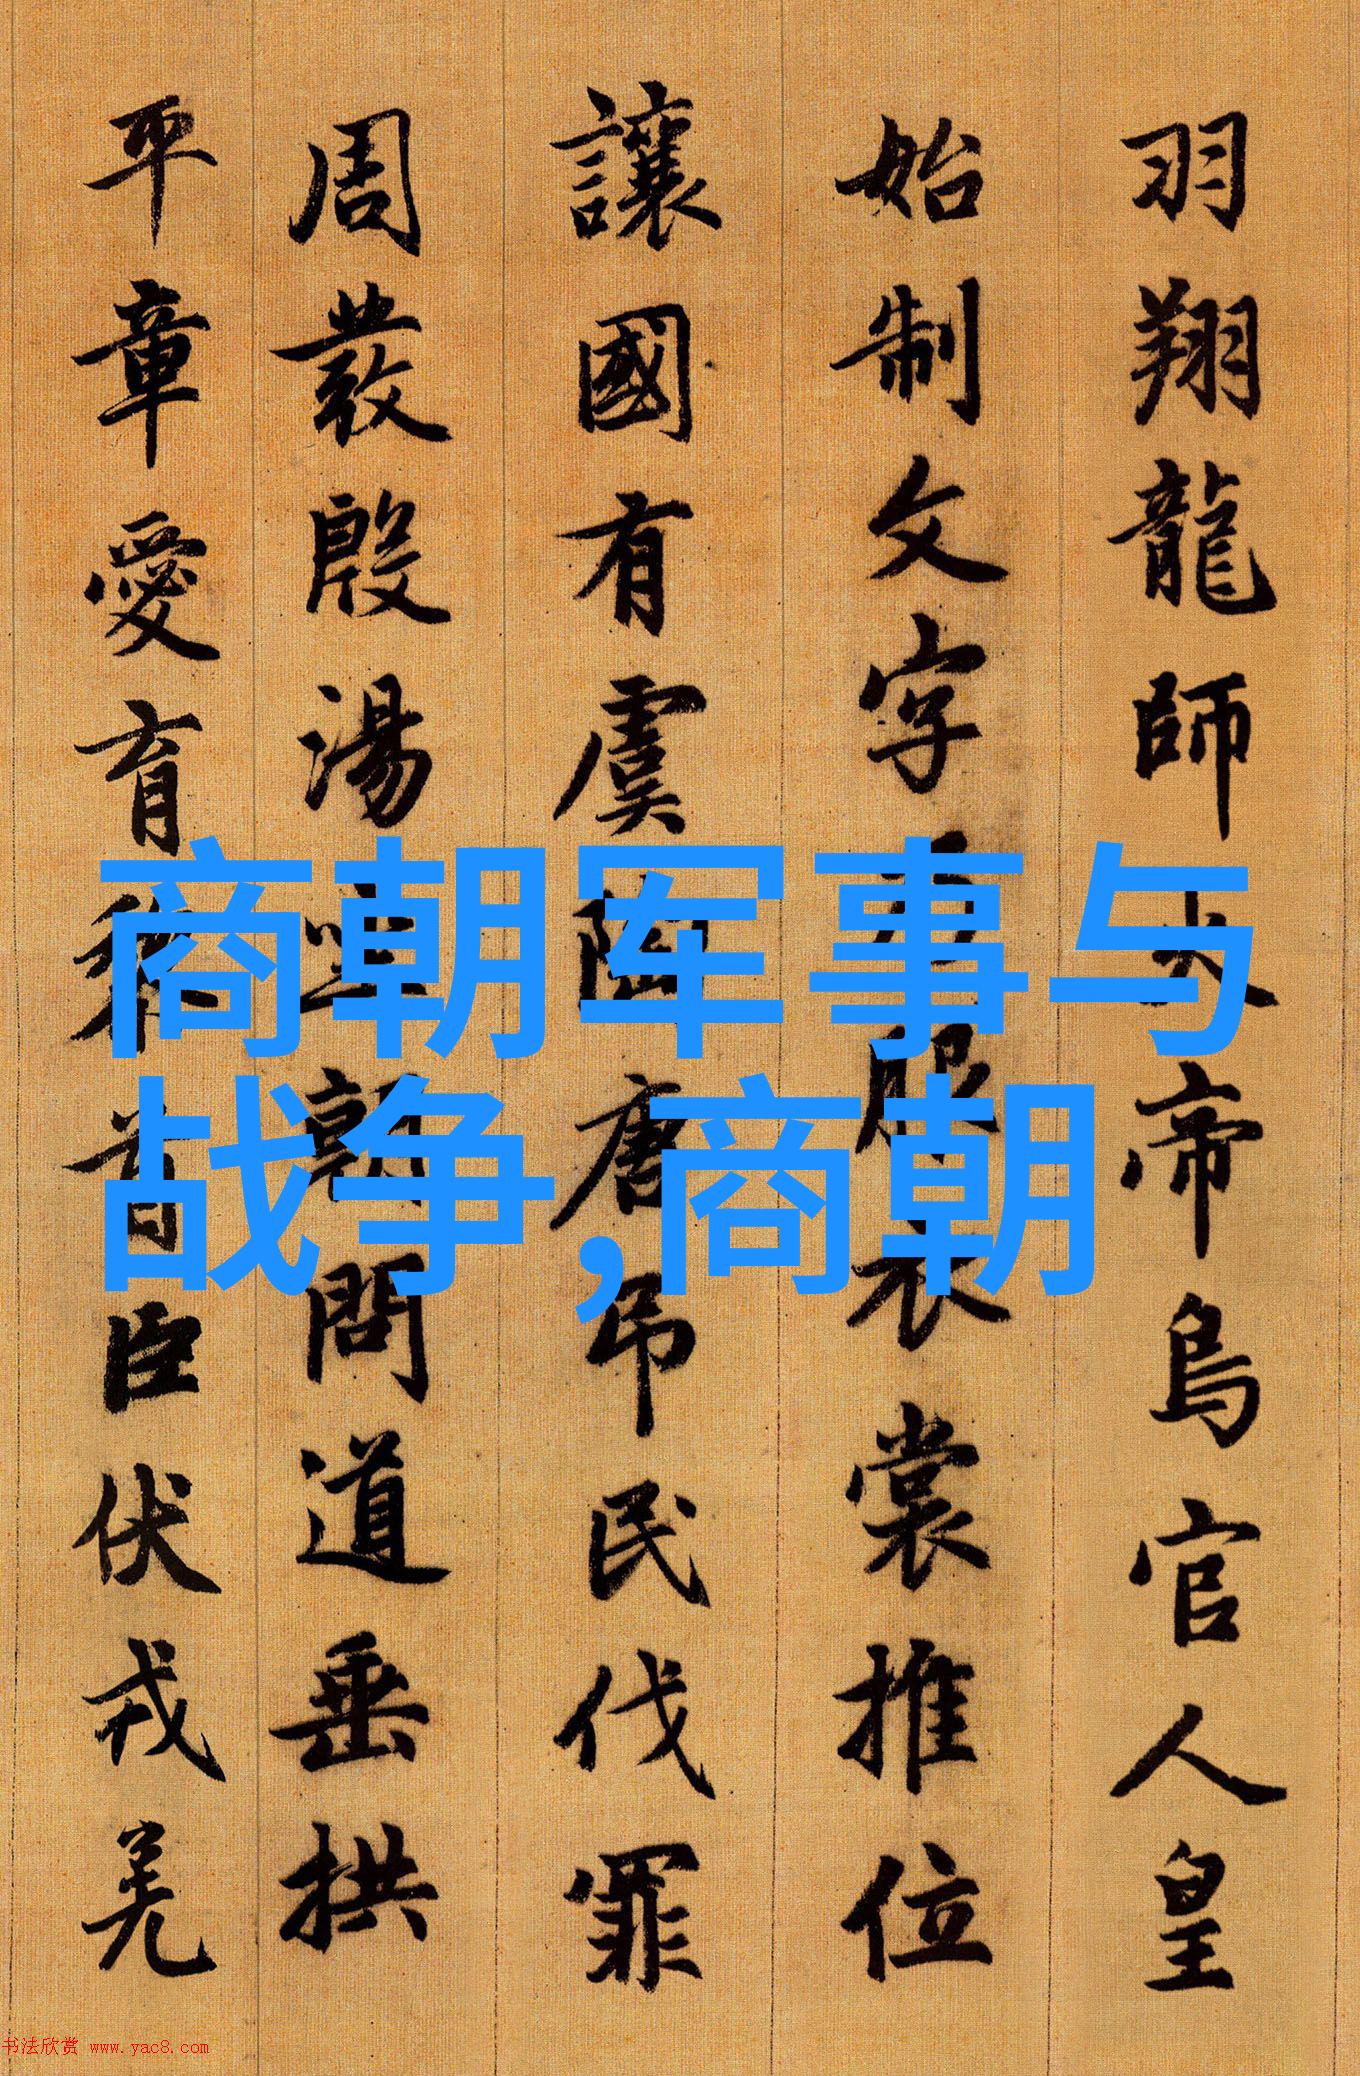 羽翔龍師火帝鳥官人皇
始制文字乃服衣裳推位
讓國有虞陶唐吊民伐罪
周發殷湯坐朝問道垂拱
平章愛育黎首臣伏戎羌
商朝军事与
战争,商朝
书法欣赏 www.yac8.com